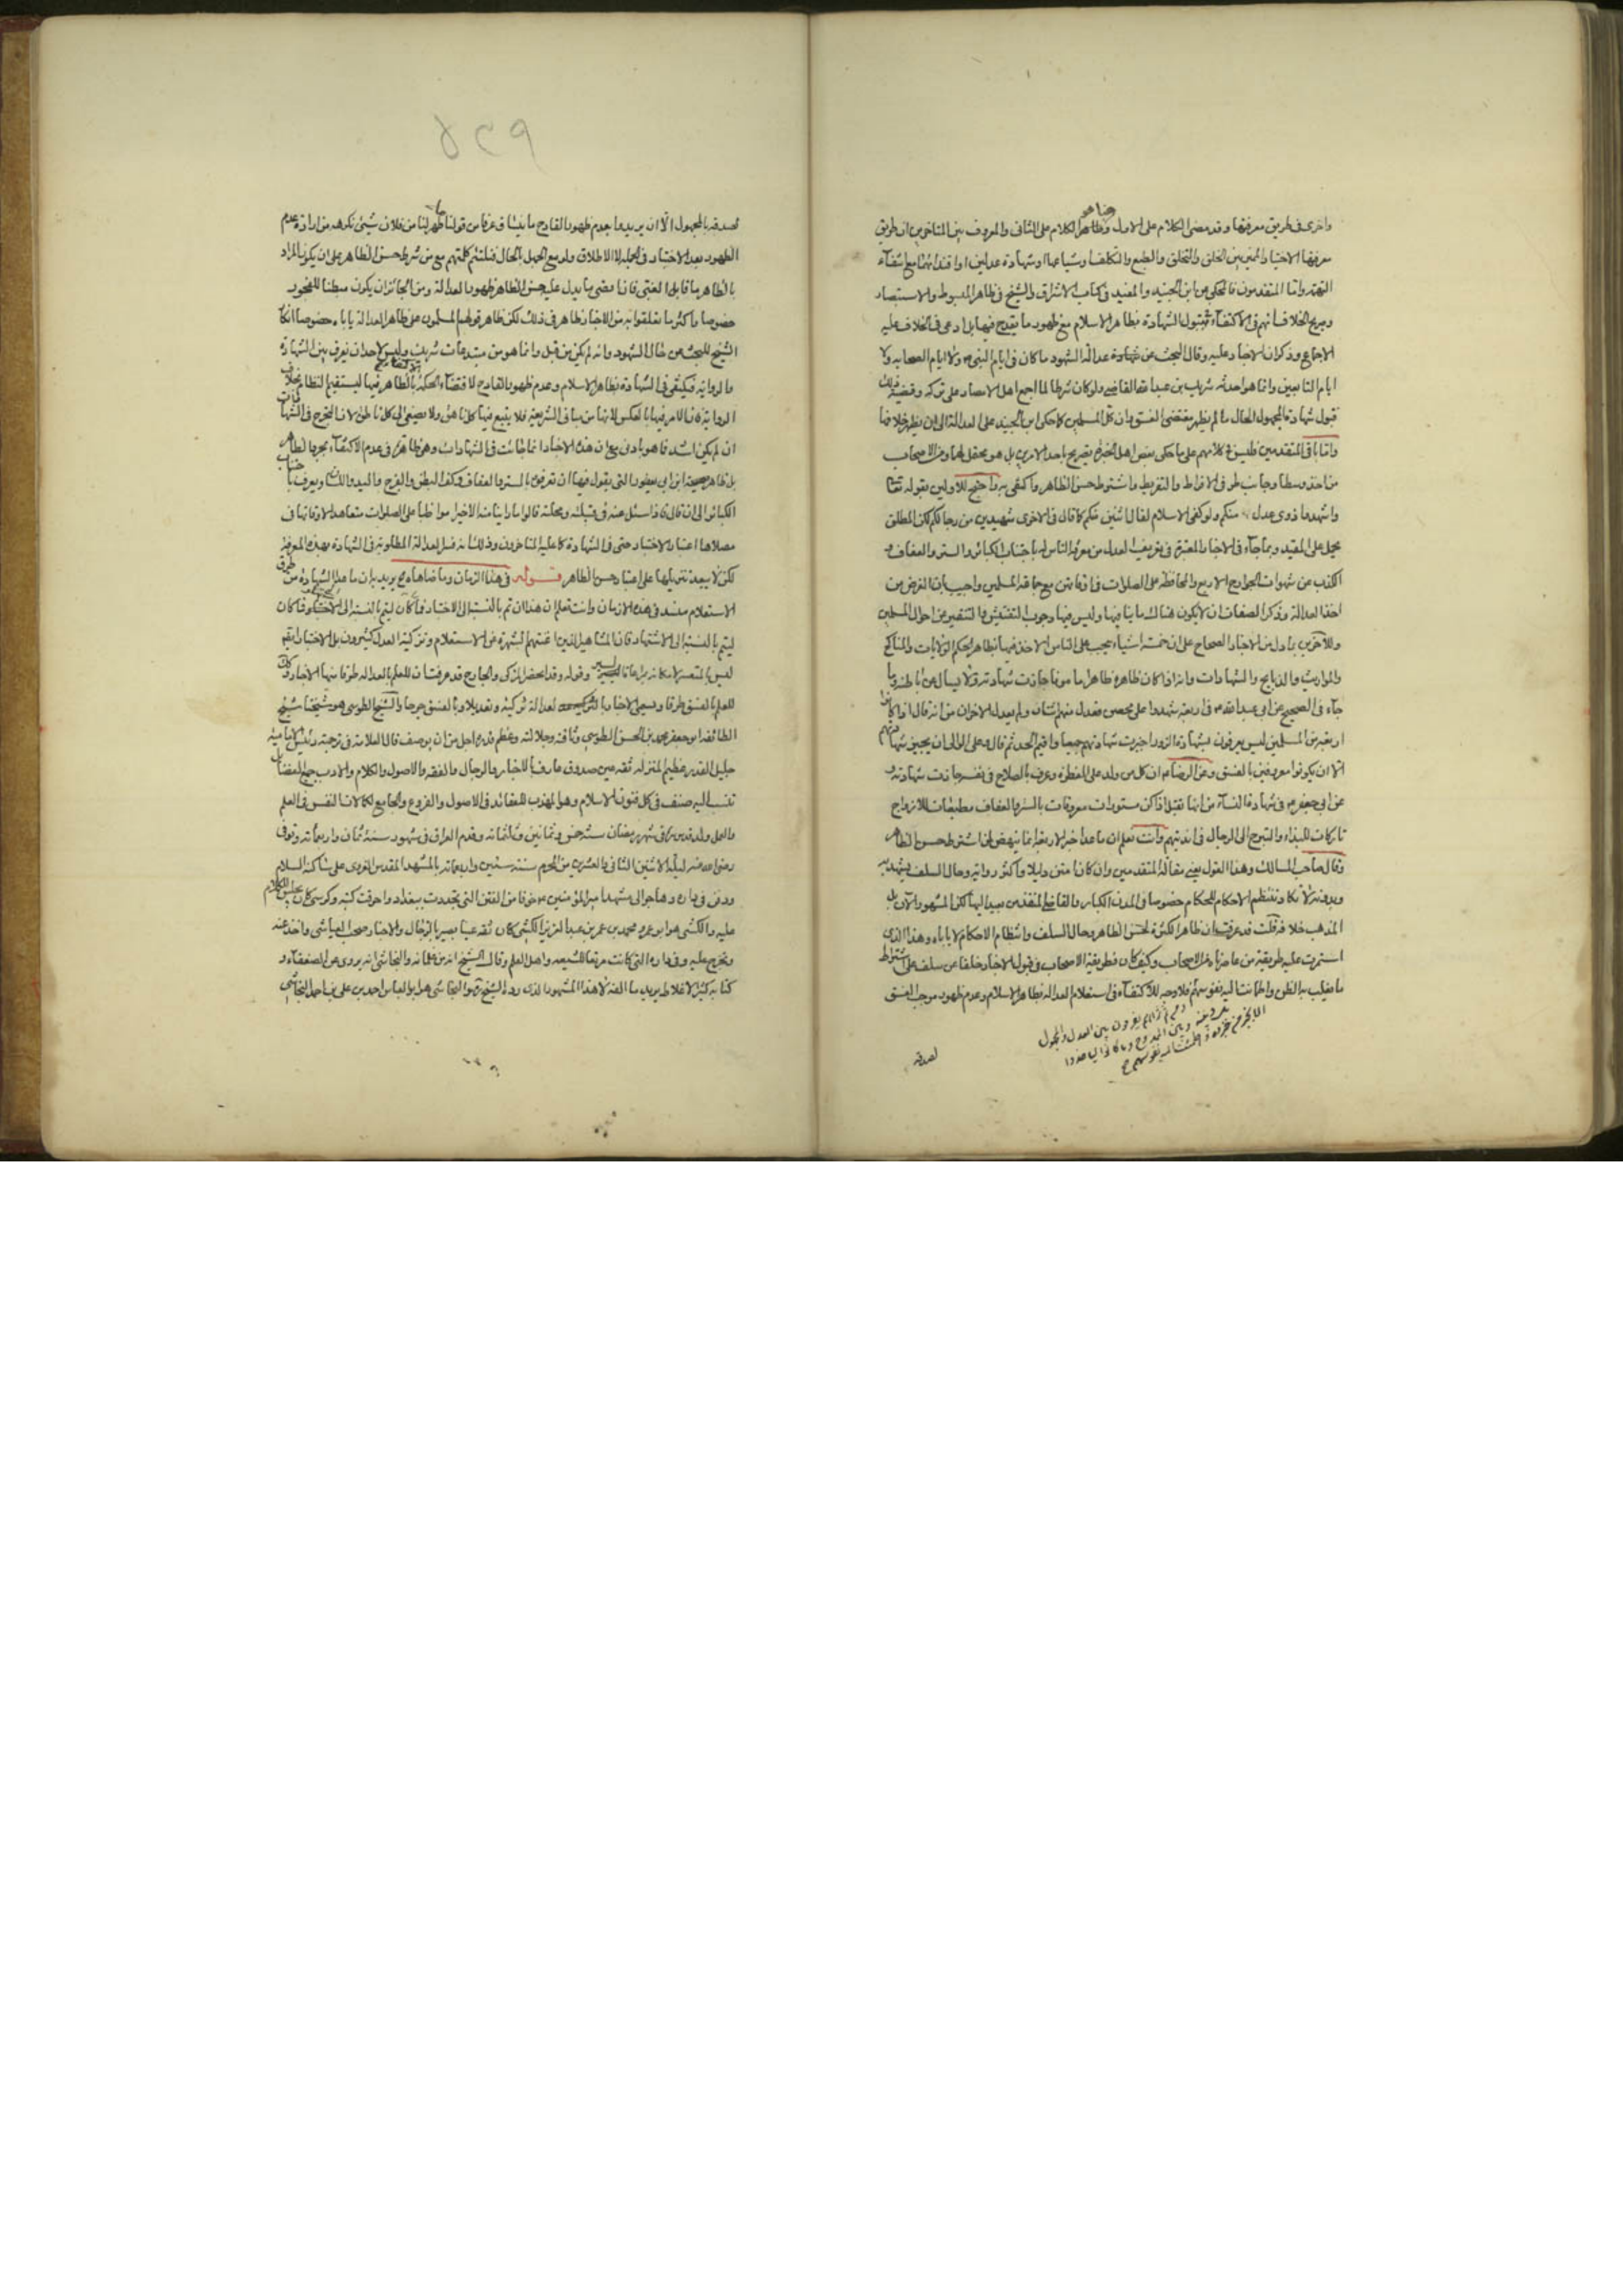 واخرى فى طريق معرفتها وقد مضى الكلام على الاول وهنا الكلام على الثانى والمعروف بين المتاخرين ان طريق
معرفتها الاختبار المميز بين الخلق والتخلق والطبع والتكلف او شياعها او شهادة عدلين او اقتدائهما مع انتفاء
التهمة واما المتقدمون فالمحكى عن ابن الجنيد والمفيد فى كتاب الاشراق والشيخ فى ظاهر المبسوط والاستبصار
وصريح الخلاف انهم فى الاكتفاء فى قبول الشهادة بظاهر الاسلام مع ظهور ما يقدح فيها بل ادعى فى الخلاف عليه
الاجماع وذكر ان الاخبار عليه وقال البحث عن عدالة الشهود ما كان فى ايام النبى ولا ايام الصحابه ولا
ايام التابعين وانما هو احدثه شريك بن عبد الله القاضى ولو كان شرطا لما اجمع اهل الامصار على تركه وقضية ذلك
قبول شهادة المجهول الحال ما لم يظهر مقتضى الفسق وان كل المسلمين كما حكى ابن الجنيد على العدالة الى ان يظهر خلافها
واما باقى المتقدمين فليس فى كلامهم على ما حكى بعض اهل الخبرة تصريح باحد الامرين بل هو محتمل لهما ومن الاصحاب
من اخذ وسطا وجانب طرفى الافراط والتفريط واشترط حسن الظاهر واكتفى به واحتج للاولين بقوله تعالى
واشهدوا ذوى عدل منكم ولو كفى الاسلام لقال اثنين منكم كما قال فى الاخرى شهيدين من رجالكم لكن المطلق
يحمل على المقيد وبما جاء فى الاخبار المعتبرة فى تعريف العدل من معرفة الناس له باجتناب الكبائر والستر والعفاف و
الكف عن شهوات الجوارح الاربع والمحافظة على الصلوات فى اوقاتهن مع جماعة المسلمين واجيب بان الغرض من
اخذ العدالة وذكر الصفات ان لا يكون هناك ما ينافيها وليس فيها وجوب التفتيش والتنقير عن احوال المسلمين
وللآخرين بما دل من الاخبار الصحاح على ان خمسة اشياء يجب على الناس الاخذ فيها بظاهر الحكم الولايات والمناكح
والمواريث والذبايح والشهادات وانه اذا كان ظاهره ظاهرا مامونا جازت شهادته ولا يسال عن باطنه وبما
جاء فى الصحيح عن ابى عبد الله فى اربعة شهدوا على محصن فعدل منهم اثنان ولم يعدل الاخران من انه قال اذا كانوا
اربعة من المسلمين ليس يعرفون بشهادة الزور اجيزت شهادتهم جميعا واقيم الحد ثم قال وعلى الوالى ان يجيز شهادتهم
الا ان يكونوا معروفين بالفسق وعن الرضا ان كل من ولد على الفطرة وعرف بالصلاح فى نفسه جازت شهادته و
عن ابى جعفر فى شهادة النساء من انها تقبل اذا كن مستورات معروفات بالستر والعفاف مطيعات للازواج
تاركات للبذاء والتبرج الى الرجال فى انديتهم وانت تعلم ان ما عدا خبر الاربعة انما ينهض لمن اشترط حسن الظاهر
وقال صاحب المسالك وهذا القول يعنى مقالة المتقدمين وان كان امتن دليلا واكثر رواية وحال السلف يشهد به
وبدونه لا تكاد تنتظم الاحكام للحكام خصوصا فى المدن الكبار والقاضى المنفذ من بعيد اليها لكن المشهور الآن بل
المذهب خلافه قلت قد عرفت ان ظاهر الكثرة لحسن الظاهر وحال السلف وانتظام الاحكام لا ياباه وهذا الذى
استمرت عليه طريقة من عاصرناه من الاصحاب وكيف كان فطريقة الاصحاب فى قبول الاخبار خلفا عن سلف على اشتراط
ما يغلب به الظن واطمانت اليه نفوسهم فلا وجه للاكتفاء فى استعلام العدالة بظاهر الاسلام وعدم ظهور موجب الفسق
يفرقون بين العدل والمجهول
لصدقه
لصدقه بالمجهول الا ان يريدوا بعدم ظهور القادح ما ينساق عرفا من قولنا ما ظهر لنا من فلان شيئ نكرهه من ارادة عدم
الظهور بعد الاختبار فى الجملة لا الاطلاق ولو مع الجهل بالحال فتلتئم كلمتهم مع من شرط حسن الظاهر على ان يكون المراد
بالظاهر ما قابل الخفى فانما مضى ما يدل على حسن الظاهر ظهور العدالة ومن الجائز ان يكون مبطنا للفجور
خصوصا واكثر ما تعلقوا به من الاخبار ظاهر فى ذلك لكن ظاهر قولهم المسلمون على ظاهر العدالة ياباه خصوصا انكار
الشيخ للبحث عن حال الشهود وانه لم يكن من قبل وانما هو من مبتدعات شريك وليس لاحد ان يفرق بين الشهادة
والرواية فيكتفى فى الشهادة بظاهر الاسلام وعدم ظهور القادح لاقتضاء الحكمة بالظاهر فيها ليستقيم النظام بخلاف
الرواية فان الامر فيها بالعكس لانها من مبانى الشريعة
ان لم يكن اشد فما هو بادون مع ان هذه الاخبار انما جائت فى الشهادات وهى ظاهرة فى عدم الاكتفاء بمجرد الظاهر
بل ظاهر صحيحة ابن ابى يعفور التى يقول فيها ان تعرفوه بالستر والعفاف وكف البطن والفرج واليد واللسان ويعرف باجتناب
الكبائر الى ان قال فاذا سئل عنه فى قبيلته ومحلته قالوا ما راينا منه الا خيرا مواظبا على الصلوات متعاهدا لاوقاتها فى
مصلاه اعتبار الاختبار حتى فى الشهادة كما عليه المتاخرون وذلك انه فسر العدالة المطلوبة فى الشهادة بهذه المعرفة
لكن لا يبعد تنزيلها على اعتبار حسن الظاهر قوله فى هذا الزمان وما ضاهاه يريد بان ما عدا الشهادة من طرق
الاستعلام منسد فى هذه الازمان وانت تعلم ان هذا ان تم بالنسبة الى الاختبار فما كان ليتم بالنسبة الى
ليتم بالنسبة الى الاشتهار فان المشاهير الذين اغنتهم الشهرة عن الاستعلام وتزكية العدل كثيرون بل الاختبار ايضا
ليس بالمتعسر وقوله وقد يحصل المزكى والجارح قد عرفت ان للعلم بالعدالة طرقا منها الاخبار وكذلك
للعلم بالفسق طرقا ويسمى الاخبار بالعدالة تزكية وتعديلا وبالفسق جرحا والشيخ الطوسى هو شيخنا شيخ
الطائفة ابو جعفر محمد بن الحسن الطوسى وثاقته وجلالته وعظم قدره اجل من ان يوصف قال العلامة فى ترجمته رئيس الامامية
جليل القدر عظيم المنزلة ثقة عين صدوق عارف بالاخبار والرجال والفقه والاصول والكلام والادب جميع الفضائل
تنسب اليه صنف فى كل فنون الاسلام وهو المهذب للعقائد فى الاصول والفروع والجامع لكمالات النفس فى العلم
والعمل ولد قدس سره فى شهر رمضان سنة خمس وثمانين وثلثمائه وقدم العراق فى شهور سنة ثمان واربعمأة وتوفى
رضى الله عنه ليلة الاثنين الثانى والعشرين من المحرم سنة ستين واربعمائه بالمشهد المقدس الغروى على ساكنه السلام
ودفن فى داره وهاجر الى مشهد امير المؤمنين خوفا من الفتن التى تجددت ببغداد واحرقت كتبه وكرسى كان يجلس للكلام
عليه والكشى هو ابو عمرو محمد بن عمر بن عبد العزيز الكشى كان ثقة عينا بصيرا بالرجال والاخبار صحب العياشى واخذ عنه
وتخرج عليه وفى داره التى كانت مرتعا للشيعه واهل العلم وقال الشيخ انه من غلمانه والنجاشى انه يروى عن الضعفاء و
كتابه كثير الاغلاط يريد ما الفه لا هذا المشهور الذى والنجاشى هو ابو العباس احمد بن على بن احمد النجاشى